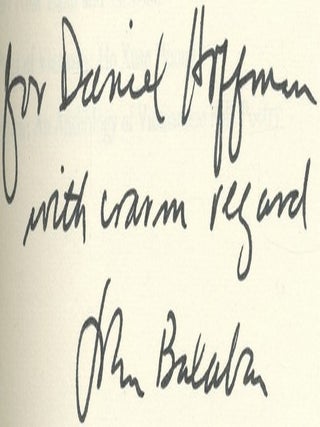 for Daniel Hoffman
with warm regard
John Balaban